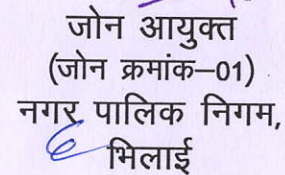 जोन आयुक्त
(जोन क्रमांक–01)
नगर पालिक निगम,
भिलाई